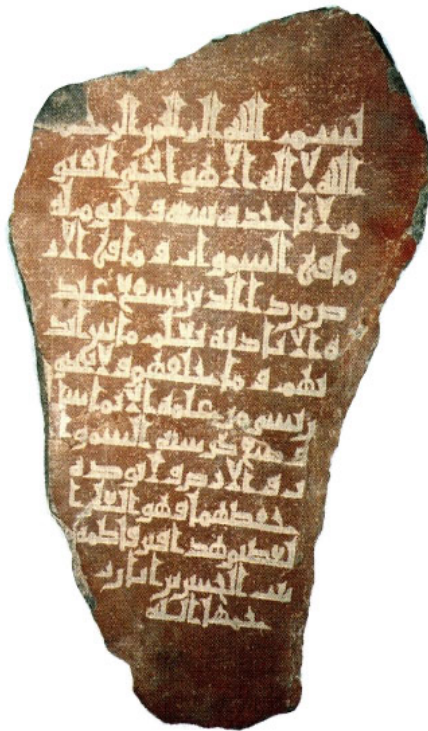 بسم الله الرحمن الرحيم
الله لا اله الا هو الحي القيو
م لا تاخذه سنة ولا نوم له
ما في السموات وما في الار
ض من ذا الذي يشفع عند
ه الا باذنه يعلم ما بين ايد
يهم وما خلفهم ولا يحيطو
ن بشي من علمه الا بما شا
وسع كرسيه السموا
ت والارض ولا يوده
حفظهما وهو العلي ا
لعظيم هذا قبر فاطمة
بنت الحسين بن ر
حمها الله